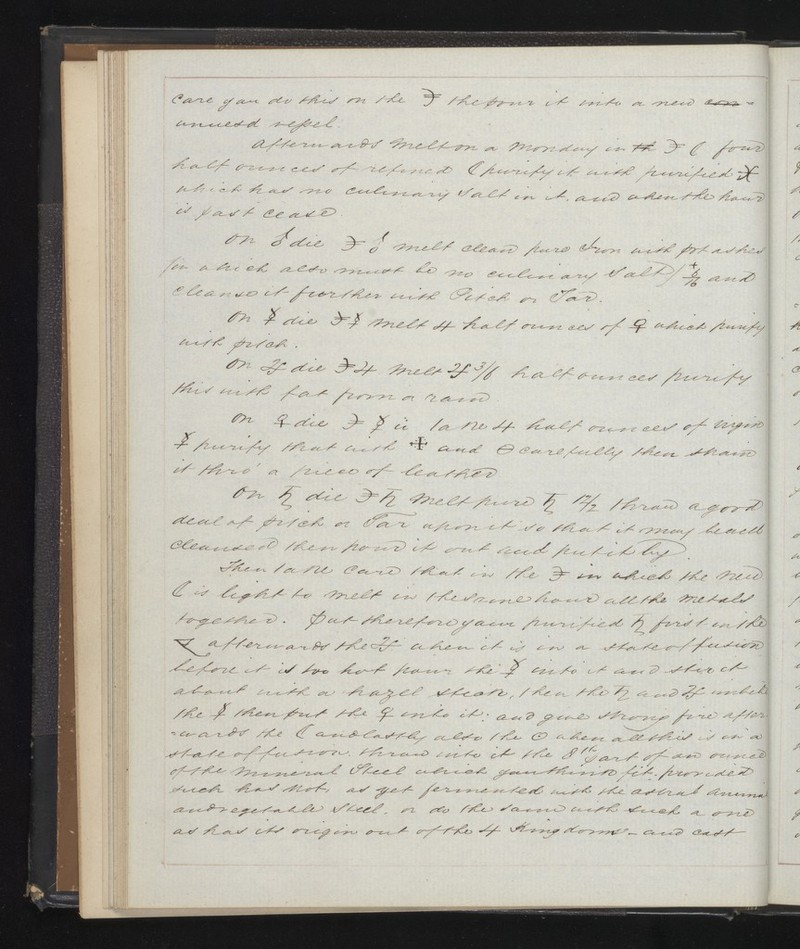 care you do this on the ᛡ the pour it into a new
unused vessel.
Afterwards Melt on a Monday in ☾ four
half ounces of refined ☾ purify it with purified
which has no culinary Salt in it. and when the hour
is past cease
On ♂ die ♂ melt clean pure Iron with pot ashes
(in which also must be no culinary Salt) and
cleanse it further with Pitch or Tar.
On ☿ die ☿ melt 4 half ounces of ♀ which purify
with pitch.
On ♃ die ♃ Melt ♃ 3/6 half ounces purify
this with fat from a ram
On ♀ die ♀ take 4 half ounces of virgin
☿ purify that with and ⊖ carefully then strain
it thro' a piece of leather
On ♄ die ♄ Melt pure ♄ throw a good
deal of pitch or Tar upon it so that it may be well
cleansed then pour it out and put it by.
Then take care that in the in which the new
☾ is light to melt in the same hour all the metals
together. Put therefore your purified ♄ first in the
afterwards the ♃ when it is in a state of fusion
before it is too hot pour the ☿ into it and stir it
about with a hazel stick, then the ♄ and ♃ imbibe
the ☿ then put the ♀ into it: and give strong fire after
=wards the ☾ and lastly also the ⊙ when all this is in a
state of fusion. throw into it the 8th part of an ounce
of the Mineral Steel which you think fit. provided
such has not as yet fermented with the astral anima
and vegetable Steel. or do the same with such a one
as has its origin out of the 4 Kingdoms - and cast